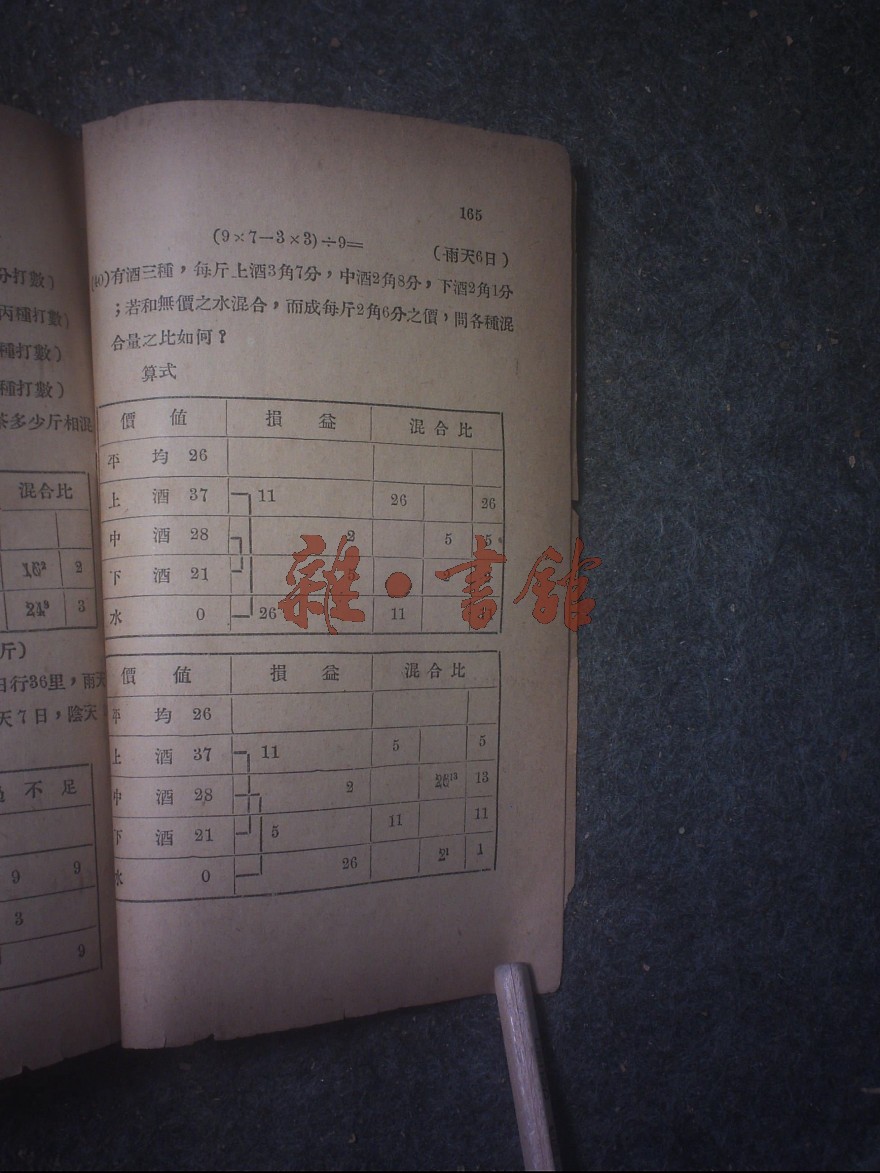 分打數)
丙種打數)
種打數)
種打數)
茶多少斤相混
混合比
16² 2
24³ 3
斤)
日行36里,雨天
天7日,陰天
不足
9 9
3
9
165
(9×7—3×3)÷9=
(雨天6日)
(40)有酒三種,每斤上酒3角7分,中酒2角8分,下酒2角1分
;若和無價之水混合,而成每斤2角6分之價,問各種混
合量之比如何?
算式
價值 損益 混合比
平均 26
上酒 37 11 26 26
中酒 28 2 5 5
下酒 21
水 0 26 11
價值 損益 混合比
平均 26
上酒 37 11 5 5
中酒 28 2 26¹³ 13
下酒 21 5 11 11
水 0 26 2¹ 1
雜·書館